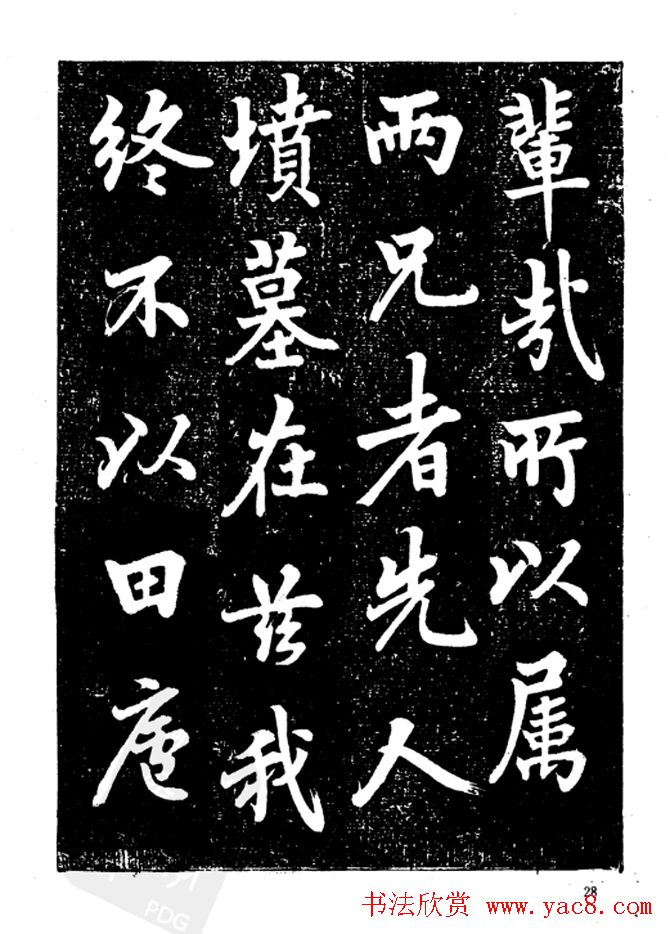 輩哉所以属
兩兄者先人
墳墓在兹我
終不以田廬
28
书法欣赏 www.yac8.com
PDG